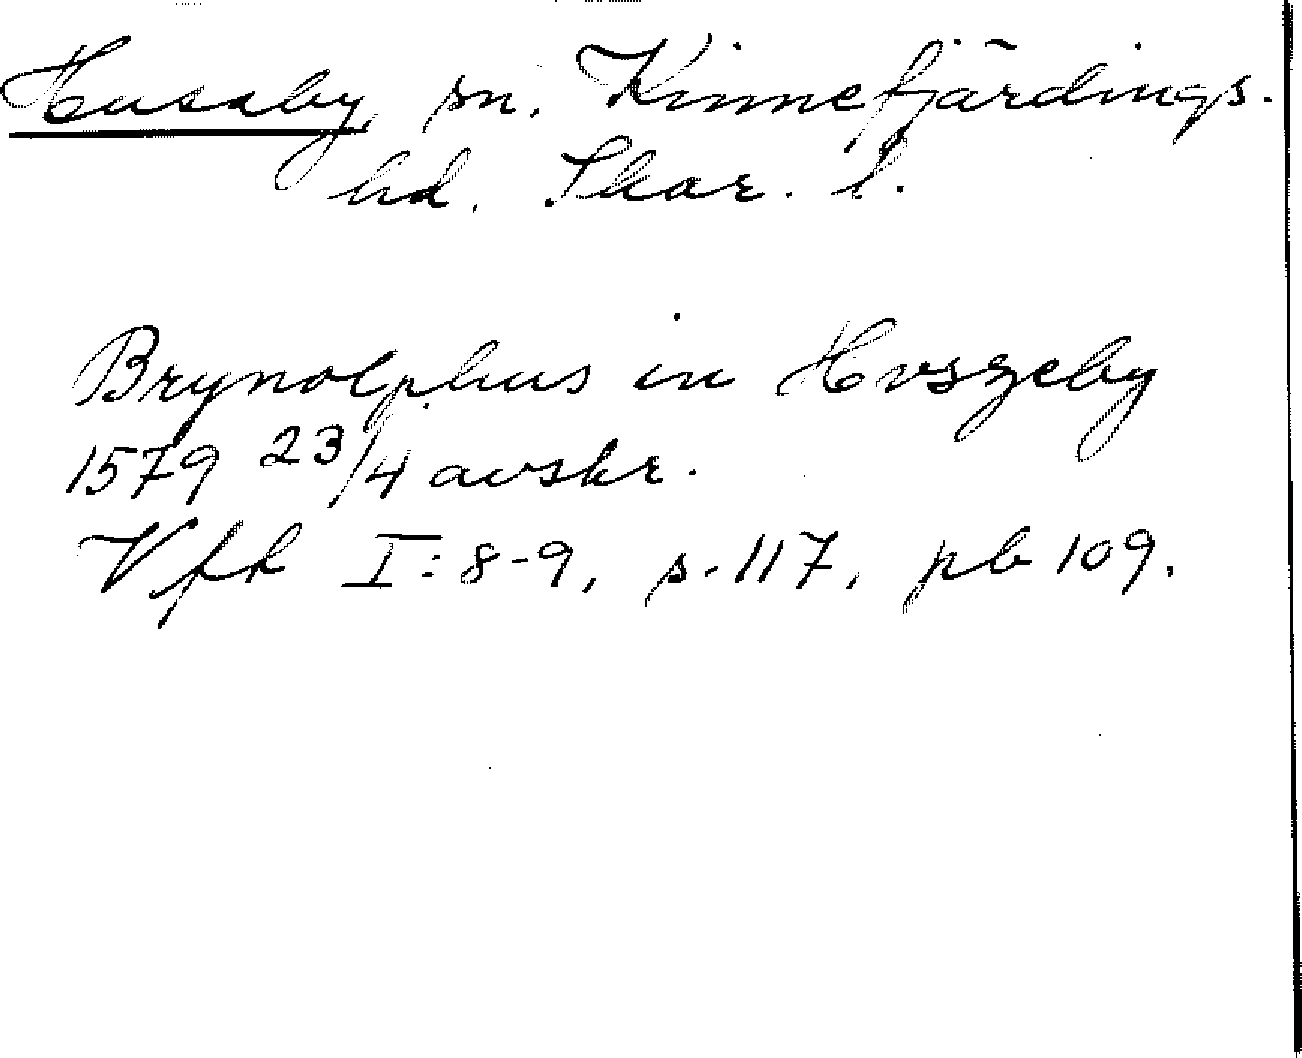 Husaby sn, Kinnefjärdings.
hd. Skar. l.
Brynolphus in Hvszeby
1579 23/4 avskr.
Vfk I:8-9, s.117, pb 109.